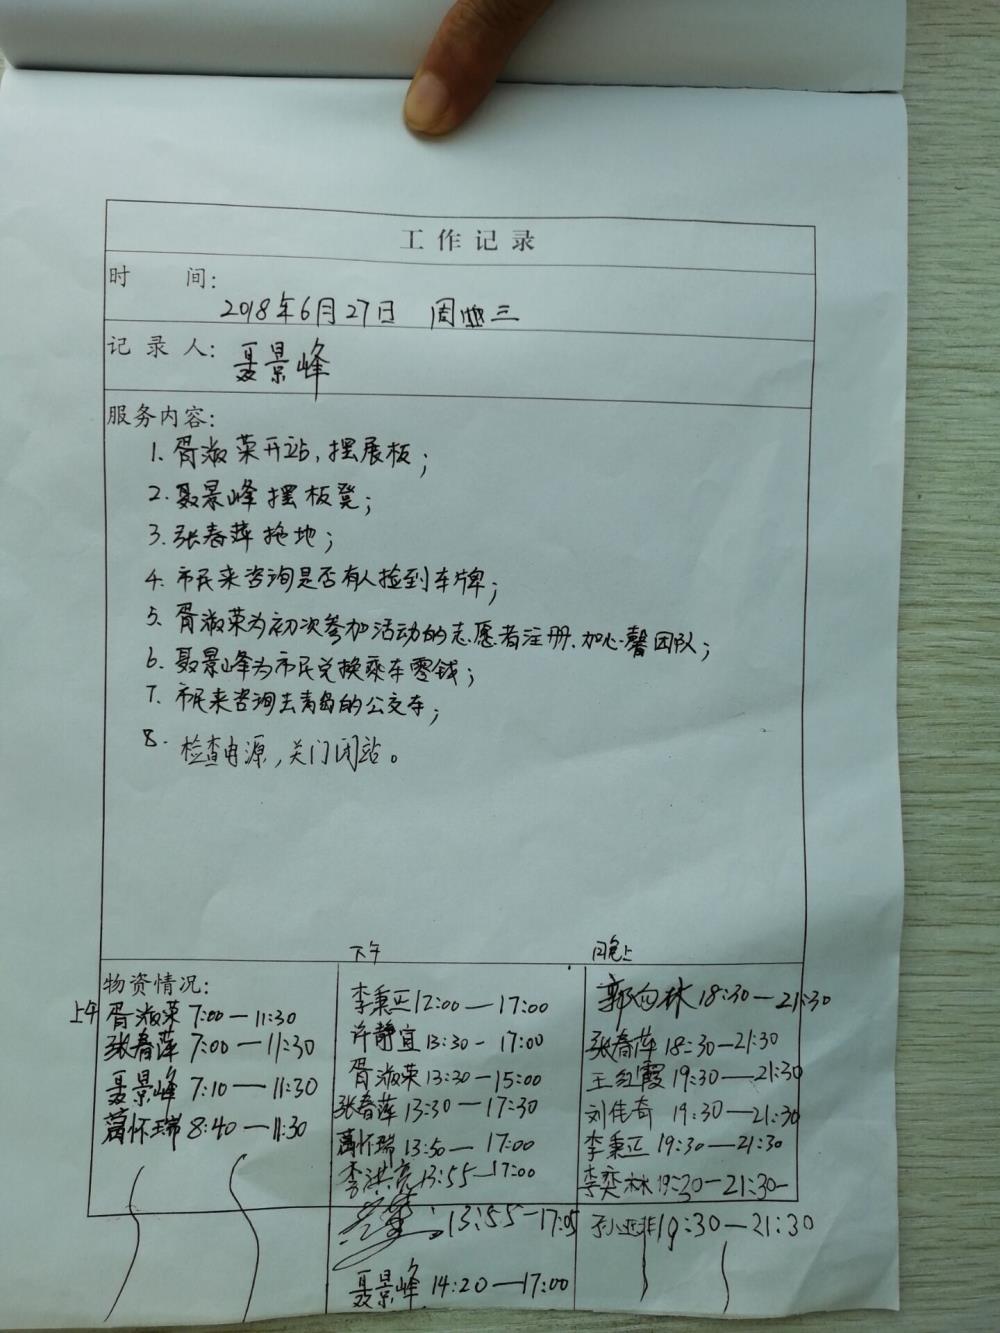 工作记录
时 间:
2018年6月27日 周三
记录人: 聂景峰
服务内容:
1. 胥淑荣开站,摆展板;
2. 聂景峰摆板凳;
3. 张春萍拖地;
4. 市民来咨询是否有人捡到车牌;
5. 胥淑荣为初次参加活动的志愿者注册.加心馨团队;
6. 聂景峰为市民兑换乘车零钱;
7. 市民来咨询去青岛的公交车;
8. 检查电源,关门闭站。
物资情况:
上午
胥淑荣 7:00—11:30
张春萍 7:00—11:30
聂景峰 7:10—11:30
葛怀瑞 8:40—11:30
下午
李秉正 12:00—17:00
许静宜 13:30-17:00
胥淑荣 13:30—15:00
张春萍 13:30—17:30
葛怀瑞 13:50—17:00
李洪亮 13:55—17:00
13:55-17:05
聂景峰 14:20—17:00
晚上
郭向林 18:30—21:30
张春萍 18:30—21:30
王红霞 19:30—21:30
刘伟奇 19:30—21:30
李秉正 19:30—21:30
李奕林 19:30—21:30
孙亚非 19:30—21:30